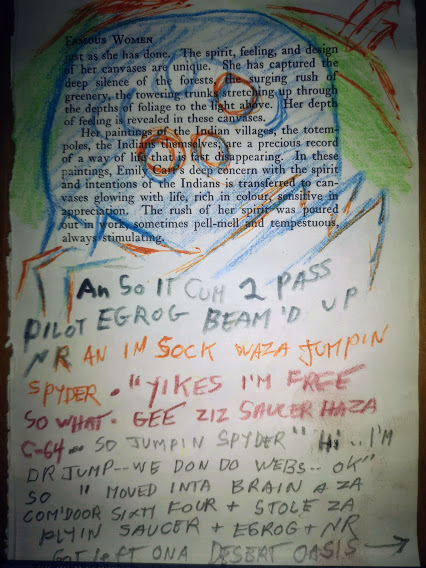 FAMOUS WOMEN
just as she has done. The spirit, feeling, and design
of her canvases are unique. She has captured the
deep silence of the forests, the surging rush of
greenery, the towering trunks stretching up through
the depths of foliage to the light above. Her depth
of feeling is revealed in these canvases.
Her paintings of the Indian villages, the totem-
poles, the Indians themselves, are a precious record
of a way of life that is disappearing. In these
paintings, Emily Carr's deep concern with the spirit
and intentions of the Indians is transferred to can-
vases glowing with life, rich in colour, sensitive in
appreciation. The rush of her spirit was poured
out in work, sometimes pell-mell and tempestuous,
always stimulating.
An So IT CUM 2 PASS
PILOT EGROG BEAM'D UP
NR AN IM SOCK WAZA JUMPIN
SPYDER. "YIKES I'M FREE
SO WHAT. GEE ZIZ SAUCER HAZA
C-64 - SO JUMPIN SPYDER" Hi.. I'M
DR JUMP--WE DON DO WEBS.. OK"
SO " MOVED INTA BRAIN A ZA
COM'DOOR SIXTH FOUR + STOLE ZA
FLYIN SAUCER + EGROG + NR
GOT LEFT ONA DESERT OASIS →